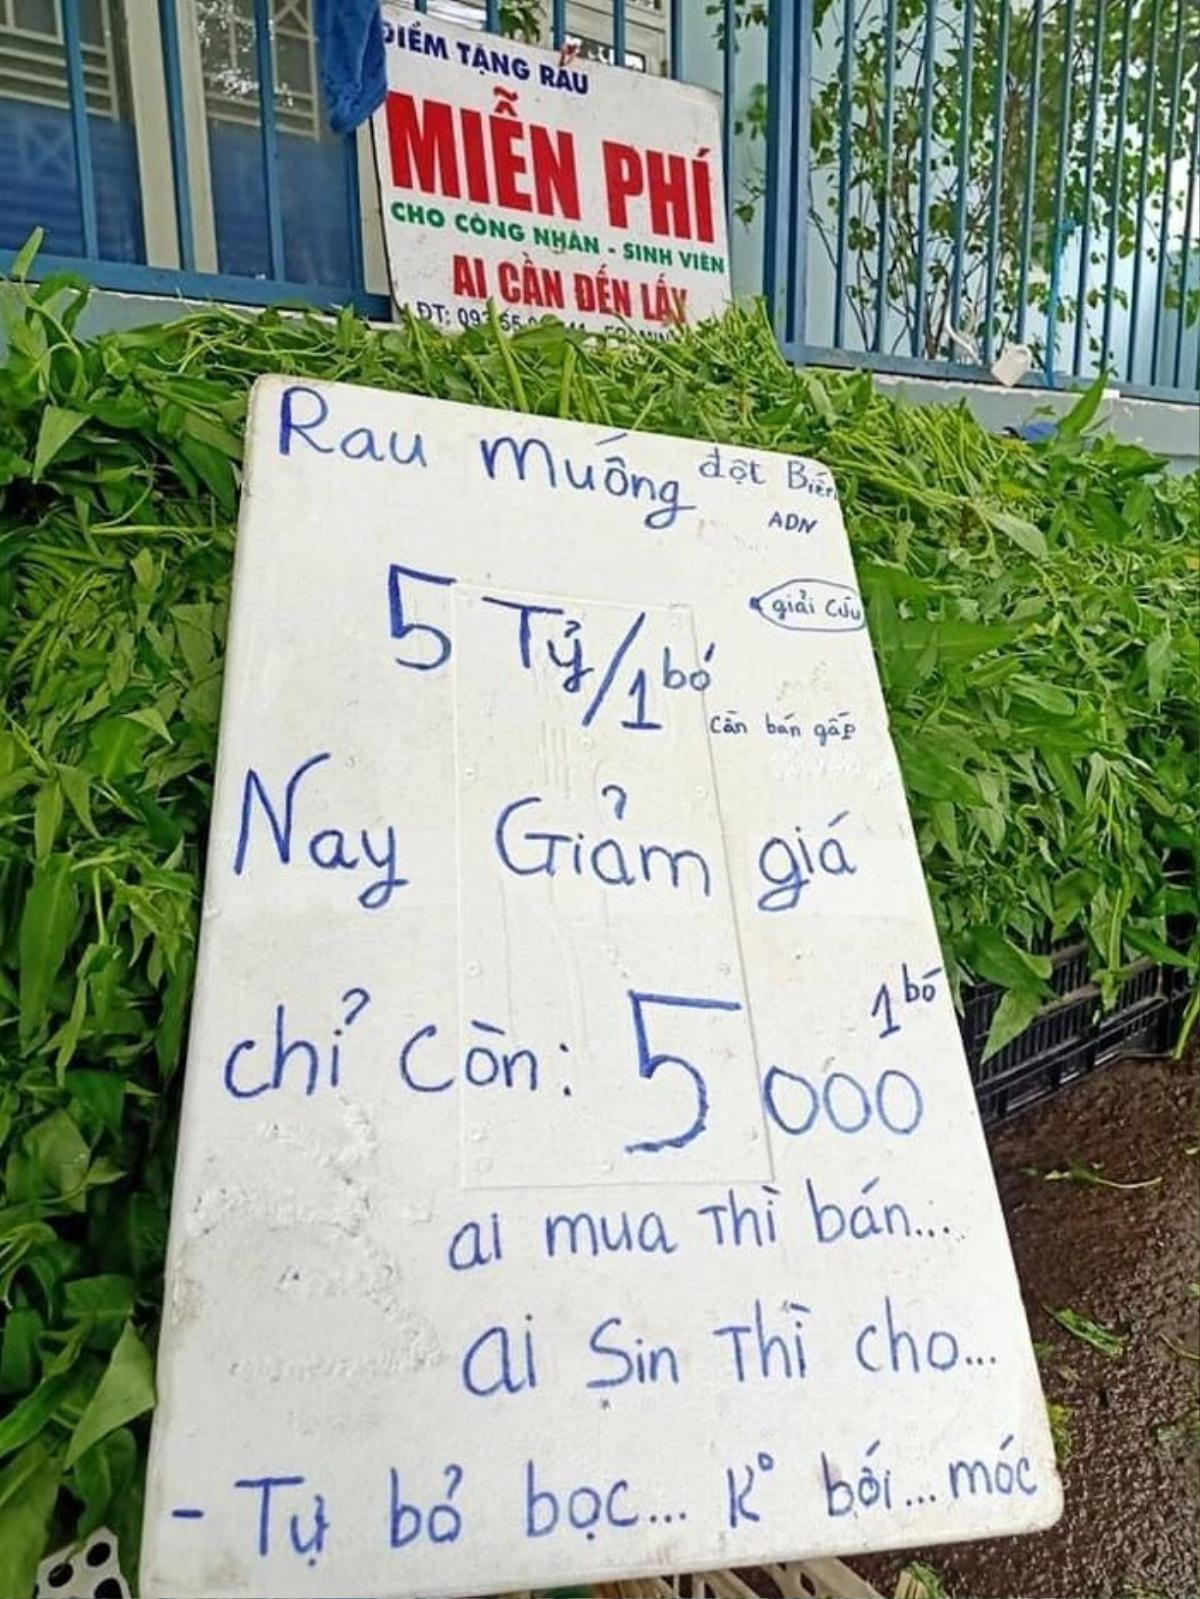 ĐIỂM TẶNG RAU
MIỄN PHÍ
CHO CÔNG NHÂN - SINH VIÊN
AI CẦN ĐẾN LẤY
ĐT:
Rau muống đột Biến
ADN
giải cứu
5 Tỷ/1 bó
Cần bán gấp
Nay Giảm giá
chỉ còn: 5 000 1 bó
ai mua Thì bán...
ai Sin Thì cho...
- Tự bỏ bọc... K° bới... móc